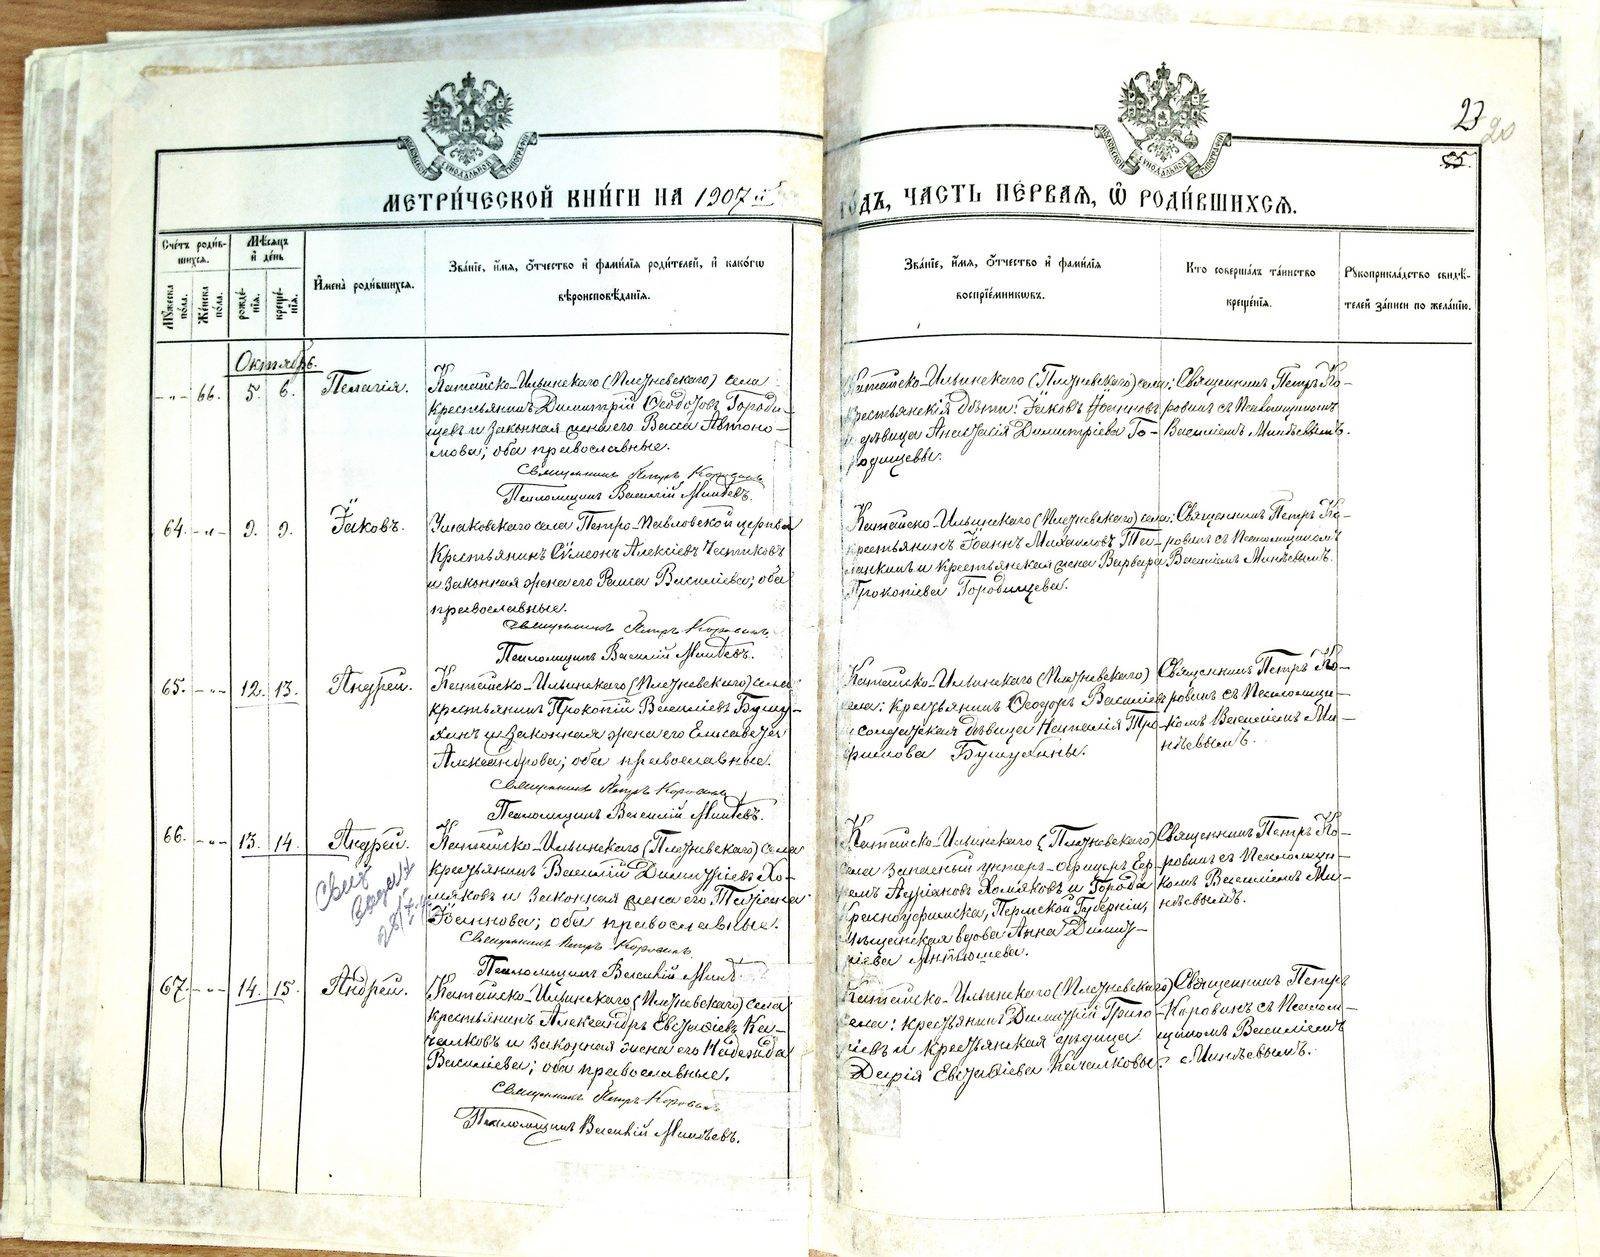 23
20
55.
МЕТРИ́ЧЕСКОЙ КНИ́ГИ НА 1907 й
ГО́ДЪ, ЧАСТЬ ПЕ́РВАЯ, Ѽ РОДИ́ВШИХСЯ.
Сче́тъ роди́в-
шихся.
Мѣ́сяцъ
и́ де́нь
Му́жеска по́ла.
Же́нска по́ла.
рожде́-
нїѧ.
креще́-
нїѧ.
И҆мена̀ роди́вшихся.
Зва́нїе, и҆́мя, ѻ҆́тчество и҆ фами́лїя роди́телей, и҆ како́гѡ
вѣроисповѣ́данїя.
Зва́нїе, и҆́мя, ѻ҆́тчество и҆ фами́лїя
воспрїе́мникѡвъ.
Кто̀ соверша́лъ та́инство
креще́нїя.
Рукоприкла́дство свидѣ́-
телей за́писи по жела́нїю.
Октябрь.
66. 5. 6. Пелагія.
Катайско-Ильинскаго (Плетневскаго) села
крестьянинъ Димитрій Ѳеодотовъ Городи-
щевъ и законная жена его Васса Автоно-
мова; оба православные.
Священникъ Петръ Коровинъ
Псаломщикъ Василій Минѣевъ.
Катайско-Ильинскаго (Плетневскаго) села:
крестьянскія дѣти: Іаковъ Іоанновъ
и дѣвица Анастасія Димитріева Го-
родищевы.
Священникъ Петръ Ко-
ровинъ съ Псаломщикомъ
Василіемъ Минѣевымъ.
64. 9. 9. Іаковъ.
села Петро-Павловской церкви
крестьянинъ Сѵмеонъ Алексіевъ
и законная жена его Раиса Василіева; оба
православные.
Священникъ Петръ Коровинъ
Псаломщикъ Василій Минѣевъ.
Катайско-Ильинскаго (Плетневскаго) села:
крестьянинъ Іоаннъ Михаиловъ
и крестьянская жена Варвара
Прокопіева Городищева.
Священникъ Петръ Ко-
ровинъ съ Псаломщикомъ
Василіемъ Минѣевымъ.
65. 12. 13. Андрей.
Катайско-Ильинскаго (Плетневскаго) села
крестьянинъ Прокопій Василіевъ Бушу-
хинъ и законная жена его Елисавета
Александрова; оба православные.
Священникъ Петръ Коровинъ
Псаломщикъ Василій Минѣевъ.
Катайско-Ильинскаго (Плетневскаго)
села: крестьянинъ Ѳеодоръ Василіевъ
и солдатская дѣвица Наталія Тро-
фимова Бушухины.
Священникъ Петръ Ко-
ровинъ съ Псаломщи-
комъ Василіемъ Ми-
нѣевымъ.
66. 13. 14. Андрей.
Катайско-Ильинскаго (Плетневскаго) села
крестьянинъ Василій Димитріевъ Хо-
мяковъ и законная жена его Татіана
Іоаннова; оба православные.
Священникъ Петръ Коровинъ
Псаломщикъ Василій Мин
Катайско-Ильинскаго (Плетневскаго)
села запасный унтеръ-офицеръ Еф-
ремъ Адріановъ Хомяковъ и города
Красноуфимска, Пермской Губерніи,
мѣщанская вдова Анна Димит-
ріева
Священникъ Петръ Ко-
ровинъ съ Псаломщи-
комъ Василіемъ Ми-
нѣевымъ.
67. 14. 15. Андрей.
Катайско-Ильинскаго (Плетневскаго) села
крестьянинъ Александръ Евстафіевъ Ка-
чалковъ и законная жена его Надежда
Василіева; оба православные.
Священникъ Петръ Коровинъ
Псаломщикъ Василій Минѣевъ.
Катайско-Ильинскаго (Плетневскаго)
села: крестьянинъ Димитрій Григо-
ріевъ и крестьянская дѣвица
Дарія Евстафіева Качалковы.
Священникъ Петръ
Коровинъ съ Псалом-
щикомъ Василіемъ
Минѣевымъ.